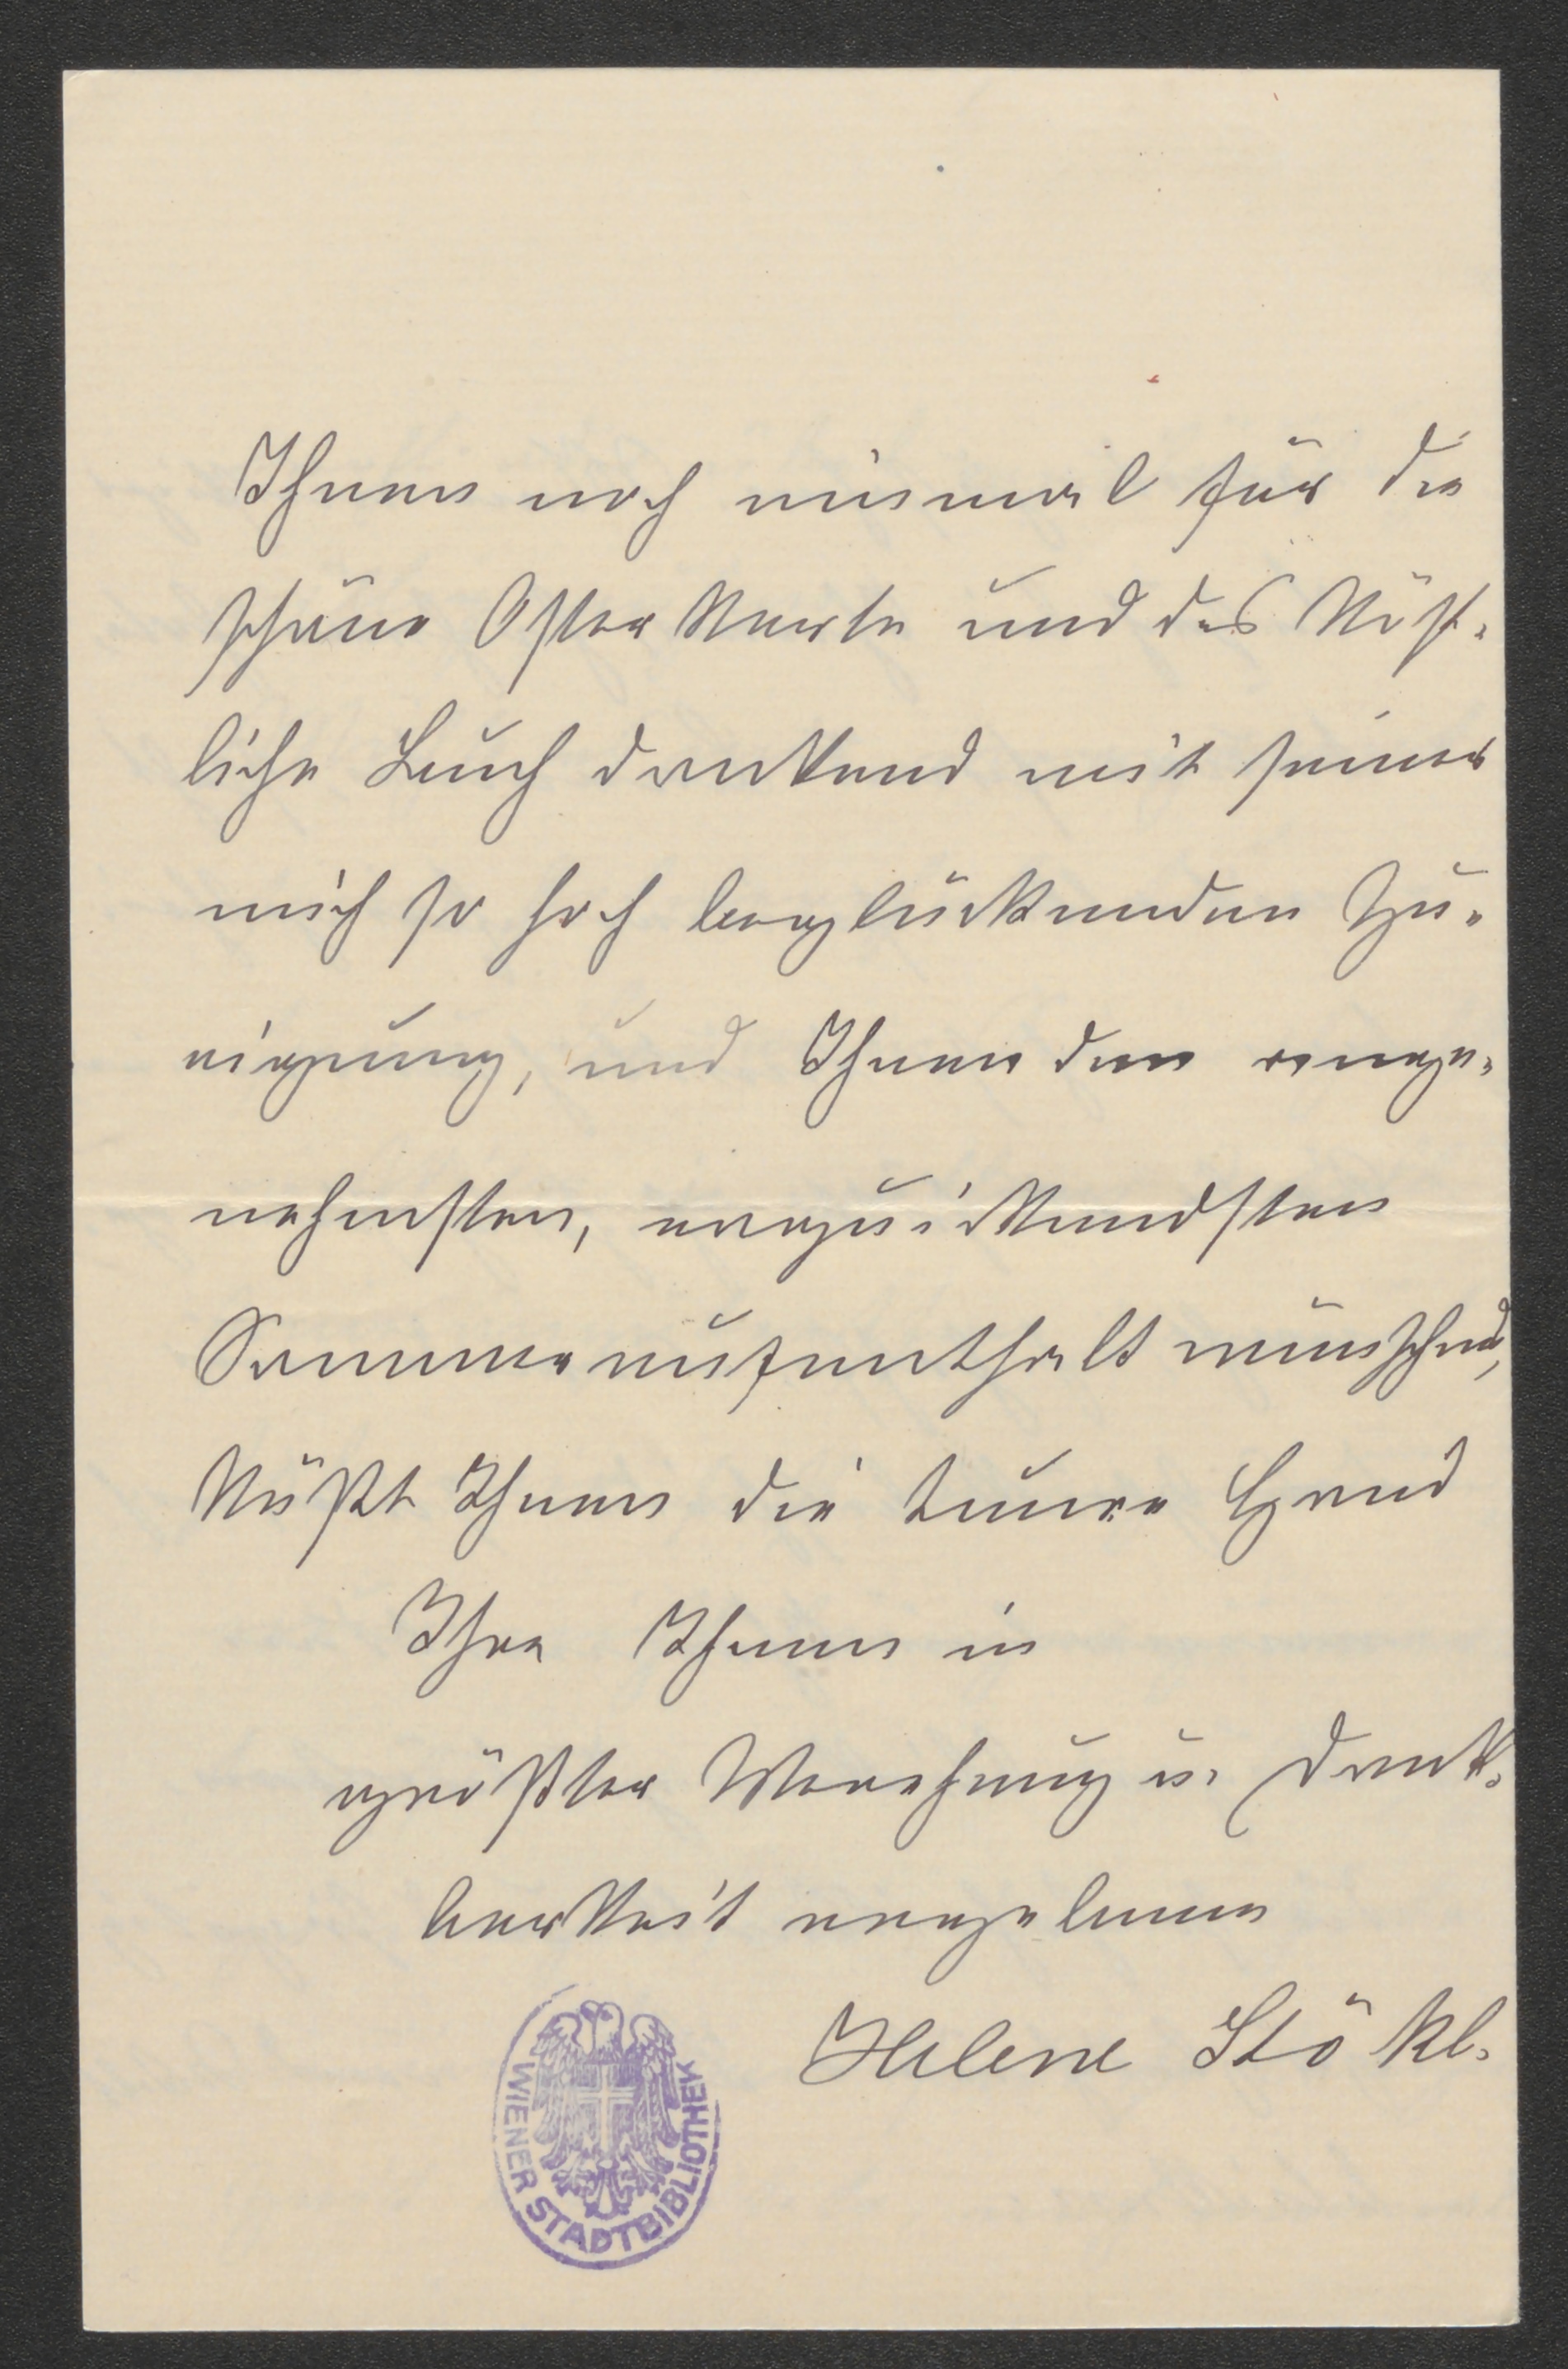 Ihnen noch einmal für die
schöne Osterkarte und das köst-
liche Buch dankend mit seiner
mich so hoch beglückenden Zu-
eignung, und Ihnen den ange-
nehmsten, erquickendsten
Sommeraufenthalt wünschend,
küßt Ihnen die teure Hand
Ihre Ihnen in
größter Verehrung u. Dank-
barkeit ergebene
Helene Stökl.
WIENER STADTBIBLIOTHEK